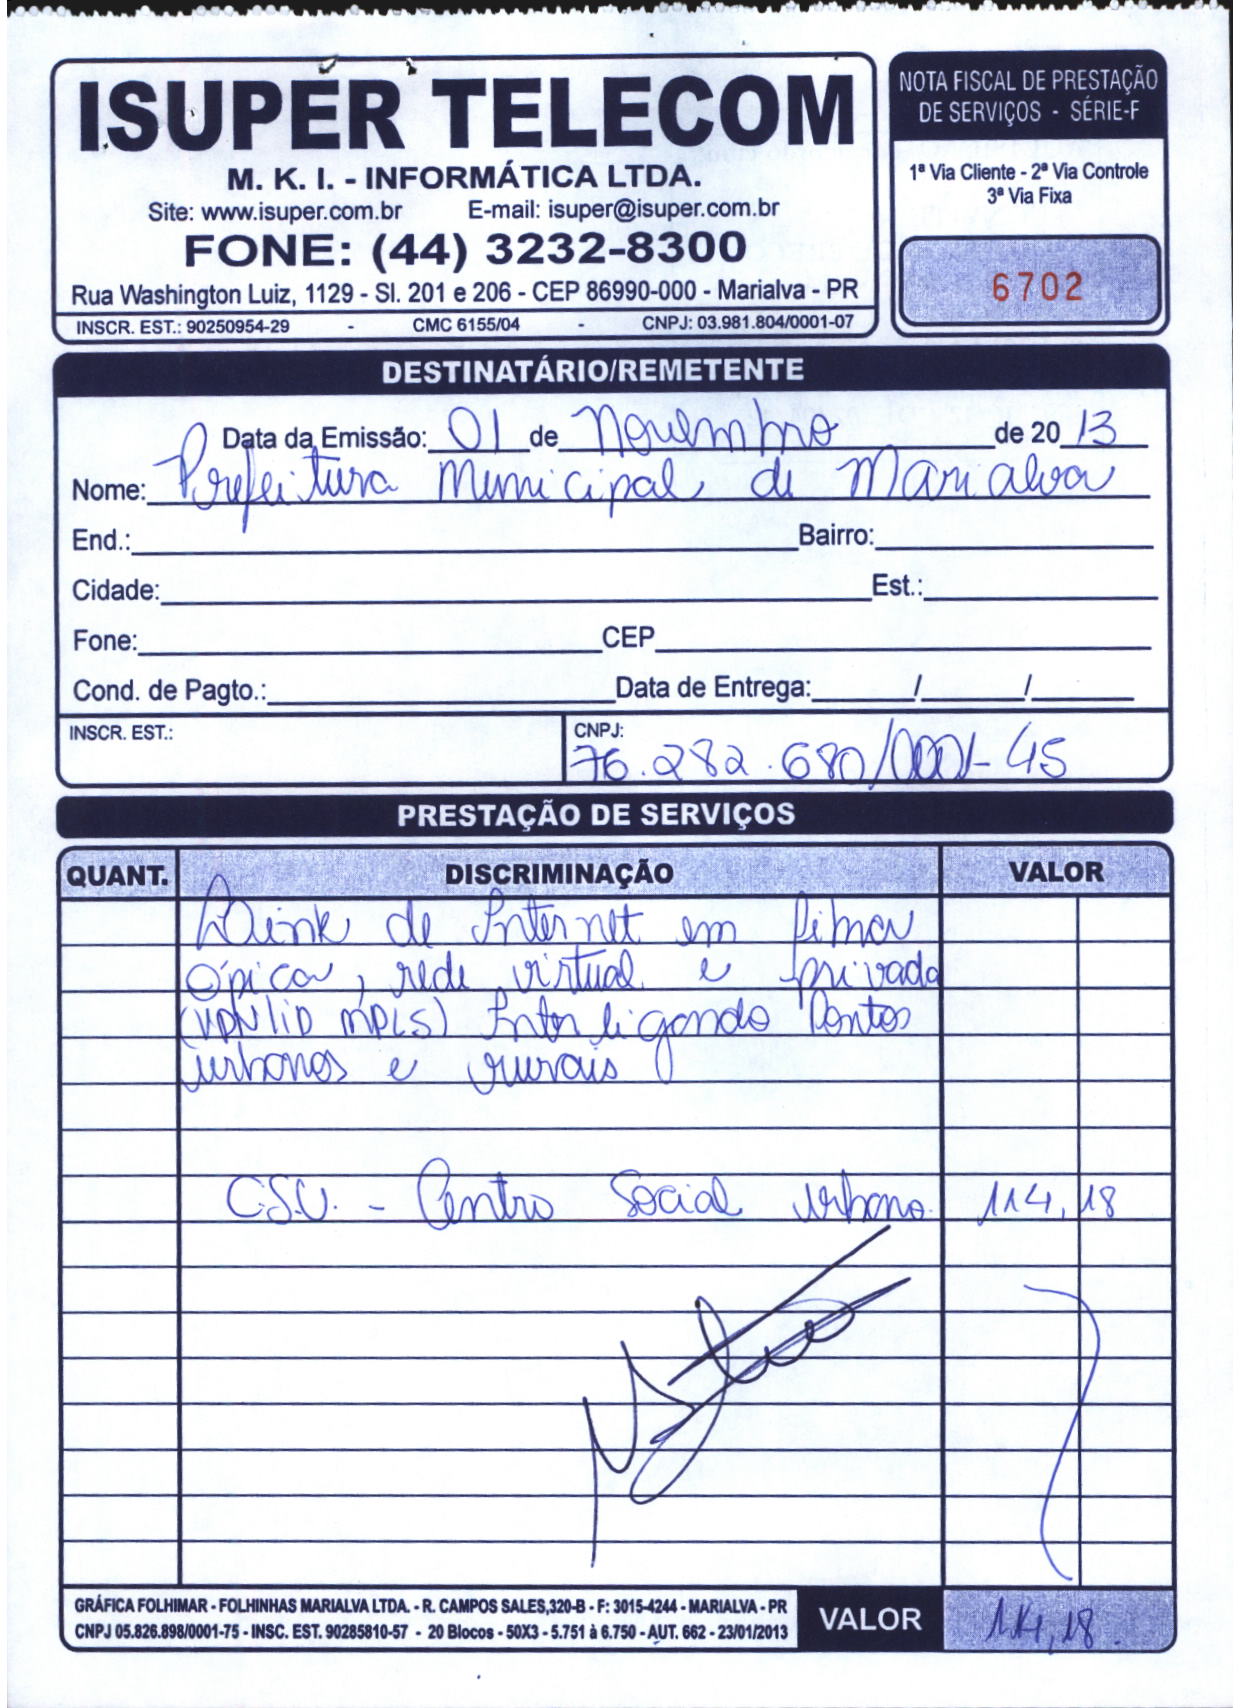 ISUPER TELECOM
M. K. I. - INFORMÁTICA LTDA.
Site: www.isuper.com.br E-mail: isuper@isuper.com.br
FONE: (44) 3232-8300
Rua Washington Luiz, 1129 - Sl. 201 e 206 - CEP 86990-000 - Marialva - PR
INSCR. EST.: 90250954-29 - CMC 6155/04 - CNPJ: 03.981.804/0001-07
NOTA FISCAL DE PRESTAÇÃO
DE SERVIÇOS - SÉRIE-F
1ª Via Cliente - 2ª Via Controle
3ª Via Fixa
6702
DESTINATÁRIO/REMETENTE
Data da Emissão: 01 de Novembro de 2013
Nome: Prefeitura Municipal de Marialva
End.: Bairro:
Cidade: Est.:
Fone: CEP
Cond. de Pagto.: Data de Entrega: / /
INSCR. EST.: CNPJ:
76.282.680/0001-45
PRESTAÇÃO DE SERVIÇOS
QUANT. DISCRIMINAÇÃO VALOR
de Internet em fibra
ópica, rede virtual e privada
MPLS) Interligando Pontos
urbanos e rurais
C.S.U. - Centro Social urbano. 114,18
GRÁFICA FOLHIMAR - FOLHINHAS MARIALVA LTDA. - R. CAMPOS SALES,320-B - F: 3015-4244 - MARIALVA - PR
CNPJ 05.826.898/0001-75 - INSC. EST. 90285810-57 - 20 Blocos - 50X3 - 5.751 à 6.750 - AUT. 662 - 23/01/2013
VALOR 114,18